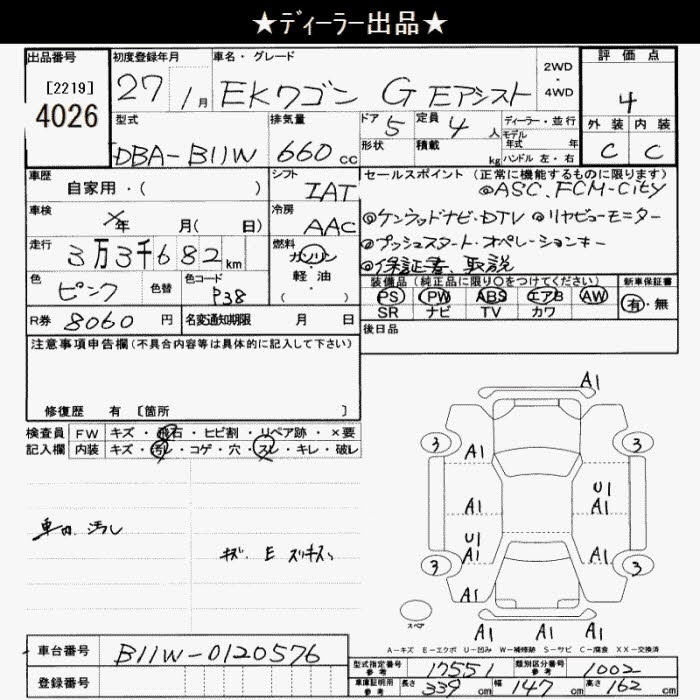 ★ディーラー出品★
出品番号
[2219]
4026
初度登録年月
27年 1月
車名・グレード
EKワゴン G Eアシスト
2WD
・
4WD
評価点
4
外装 内装
C C
型式
DBA-B11W
排気量
660cc
ドア 5
定員 4人
ディーラー・並行
モデル年式 年
形状
積載 kg
ハンドル 左・右
車歴
自家用・( )
シフト
IAT
セールスポイント (正常に機能するものに限ります)
◎ASC.FCM-City
◎ケンウッドナビ・DTV ◎リヤビューモニター
◎プッシュスタート・オペレーションキー
◎保証書、取説
車検
年 月( 日)
冷房
AAC
走行
3万3千682km
燃料
ガソリン
軽・油
( )
色
ピンク
色替
色コード
P38
装備品 (純正品に限り○をつけてください)
PS PW ABS エアB AW
SR ナビ TV カワ
新車保証書
有・無
R券 8060円
名変通知期限 月 日
後日品
注意事項申告欄(不具合内容等は具体的に記入して下さい)
修復歴 有 [箇所 ]
検査員
記入欄
FW キズ・飛石・ヒビ割・リペア跡・×要
内装 キズ・汚レ・コゲ・穴・スレ・キレ・破レ
車内 汚レ
A1
3 3
A1
U1
A1 A1
U1
A1 A1
3 3
A1 A1
スペア
A1 A1 A1
A-キズ E-エクボ U-凹み W-補修跡 S-サビ C-腐食 XX-交換済
車台番号 B11W-0120576
登録番号
型式指定番号 参考 17551
類別区分番号 参考 1002
車庫証明用 参考 長さ 339cm 幅 147cm 高さ 162cm